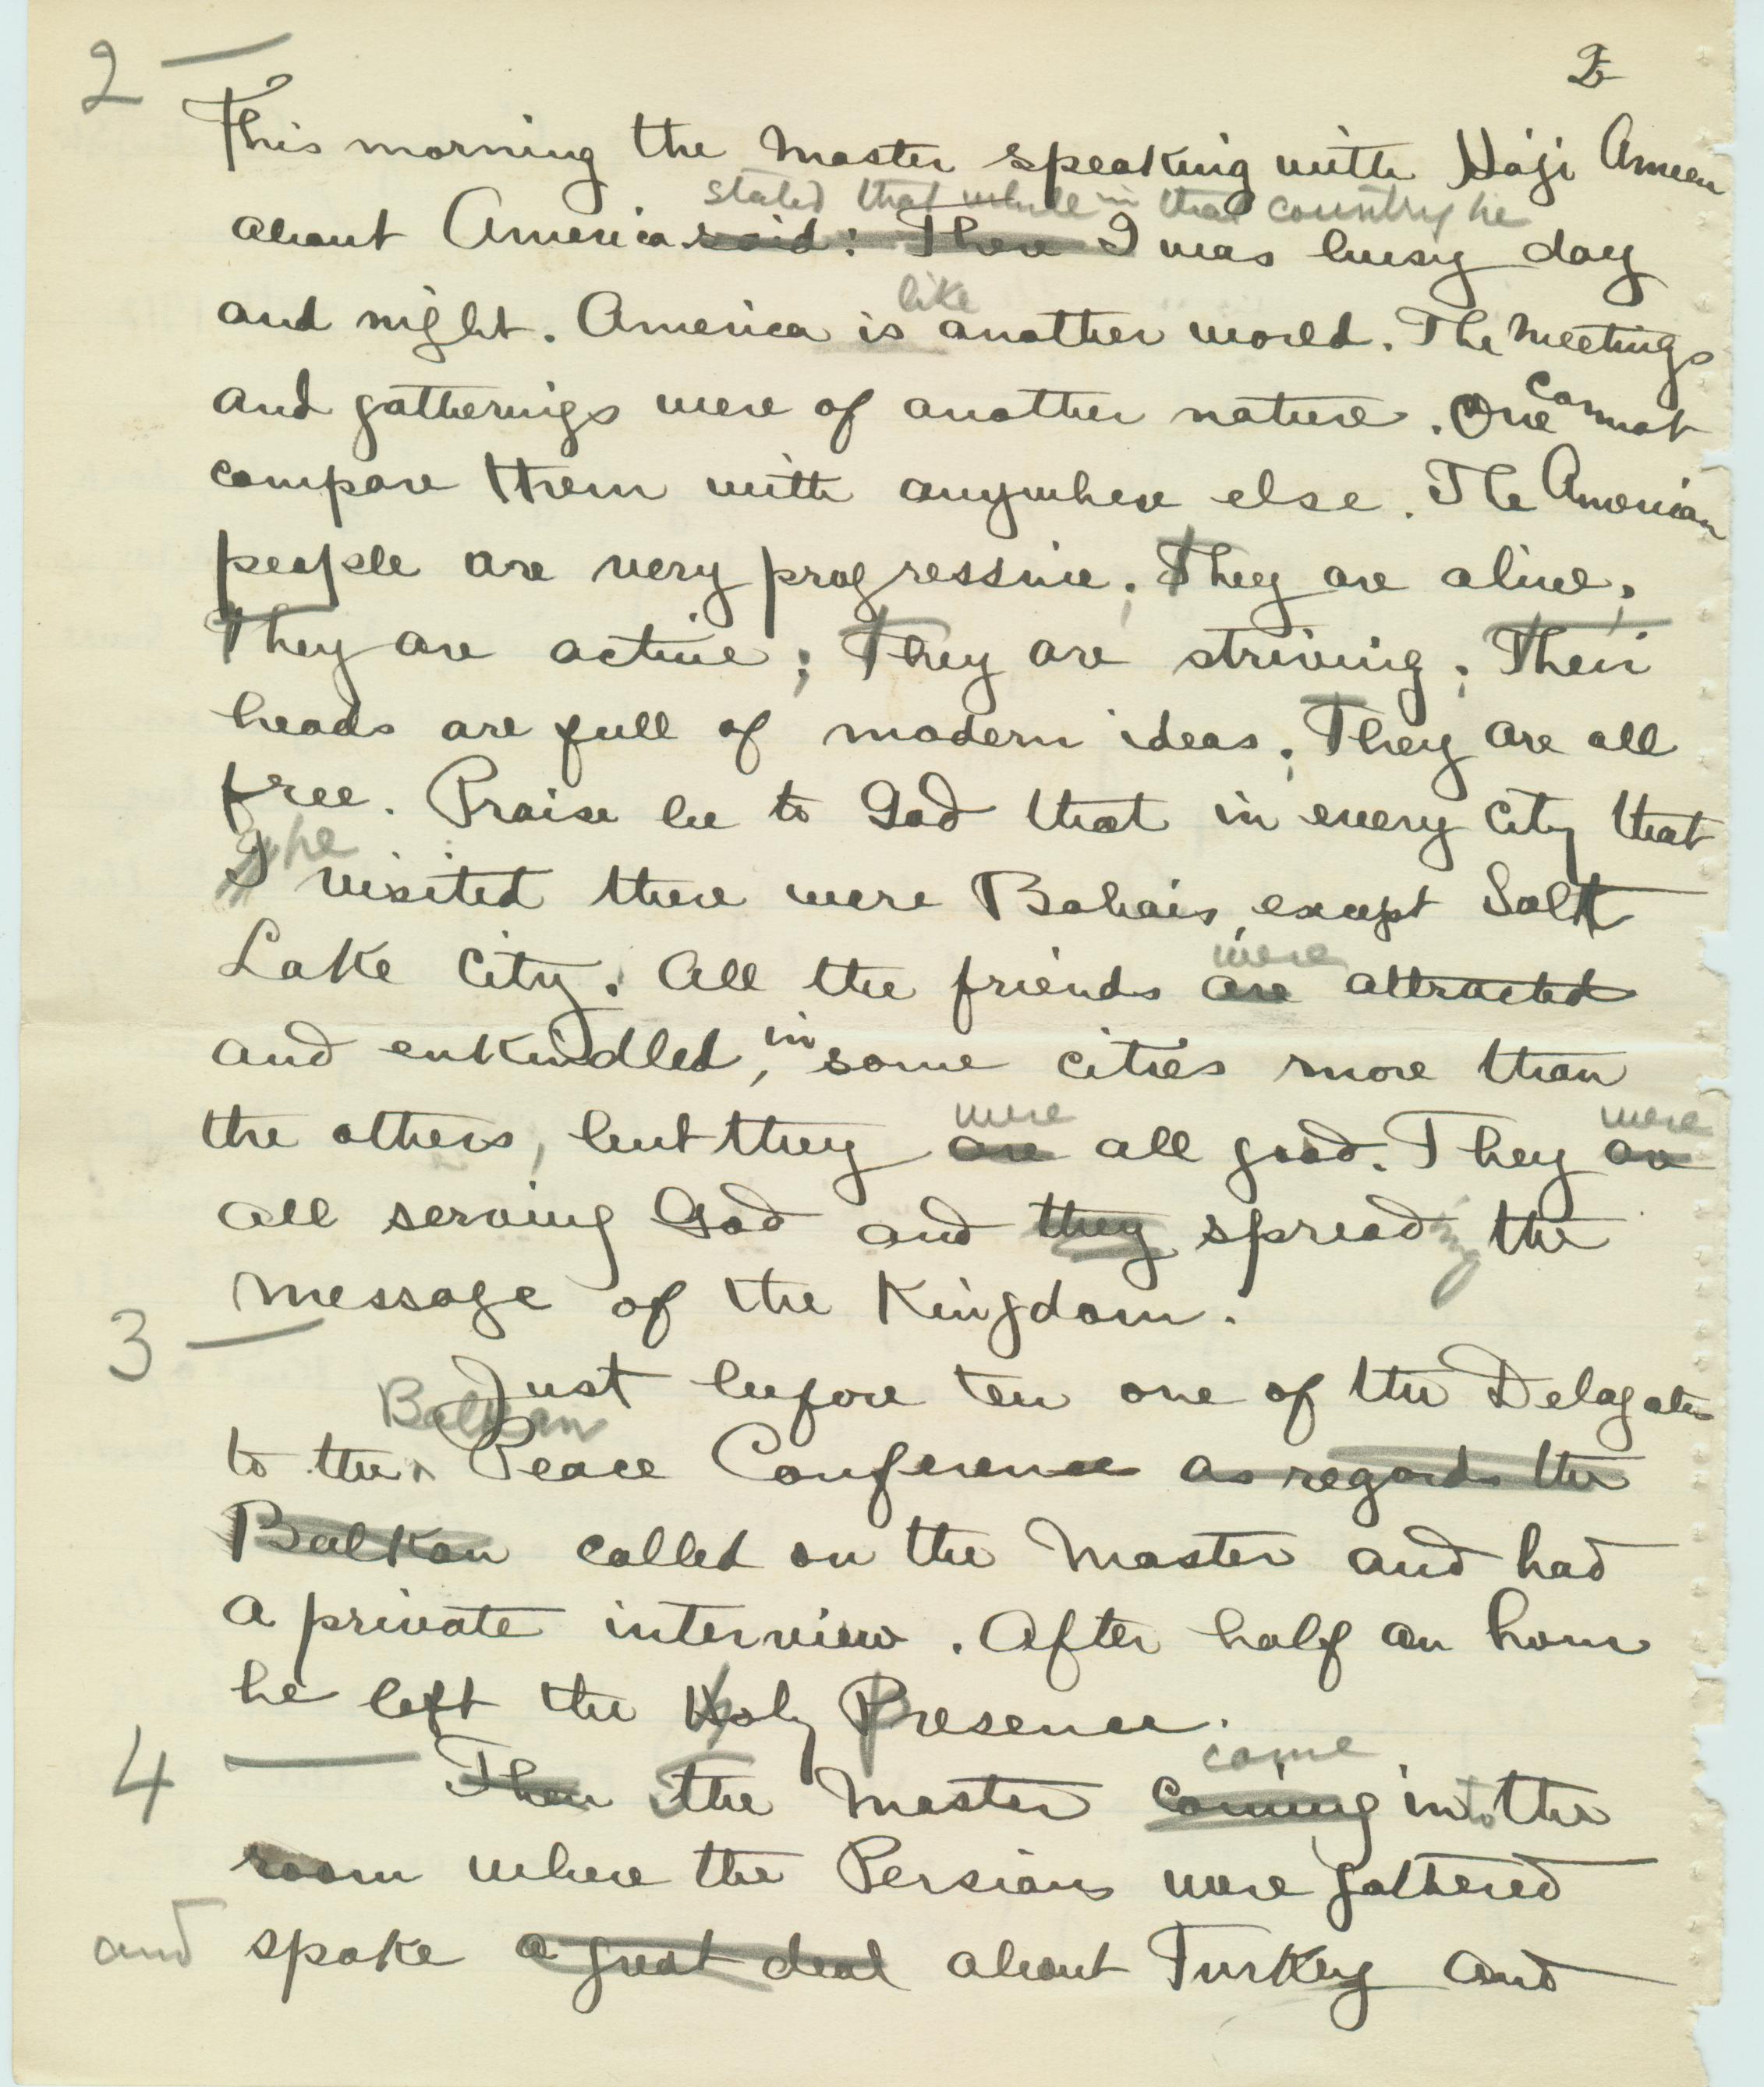 2 — 2
This morning the Master speaking with Haji Ameen
stated that while in that country he
about America said: There I was busy day
like
and night. America is another world. The meetings
and gatherings were of another nature. One cannot
compare them with anywhere else. The American
people are very progressive; They are alive;
They are active; They are striving; Their
heads are full of modern ideas; They are all
free. Praise be to God that in every city that
he
I visited there were Bahais, except Salt
were
Lake City. All the friends are attracted
and enkindled, in some cities more than
were were
the others, but they are all good. They are
all serving God and they spreading the
message of the Kingdom.
3 —
Just before ten one of the Delagates
Balkan
to the ^ Peace Conference as regards the
Balkan called on the Master and had
a private interview. After half an hour
he left the Holy Presence.
came
4 — Then the Master coming into the
room where the Persians were gathered
and spoke a great deal about Turkey and